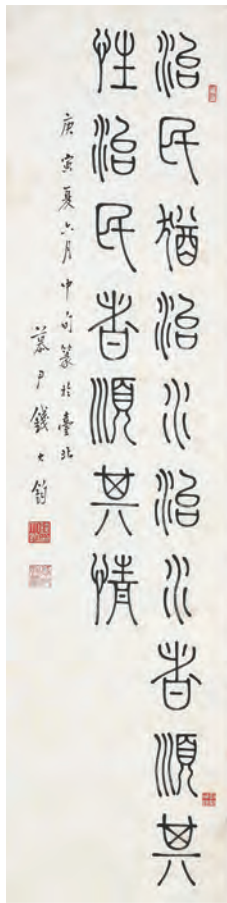 治民猶治水治水者順其
性治民者順其情
庚寅夏六月中旬篆於臺北
慕尹錢大鈞